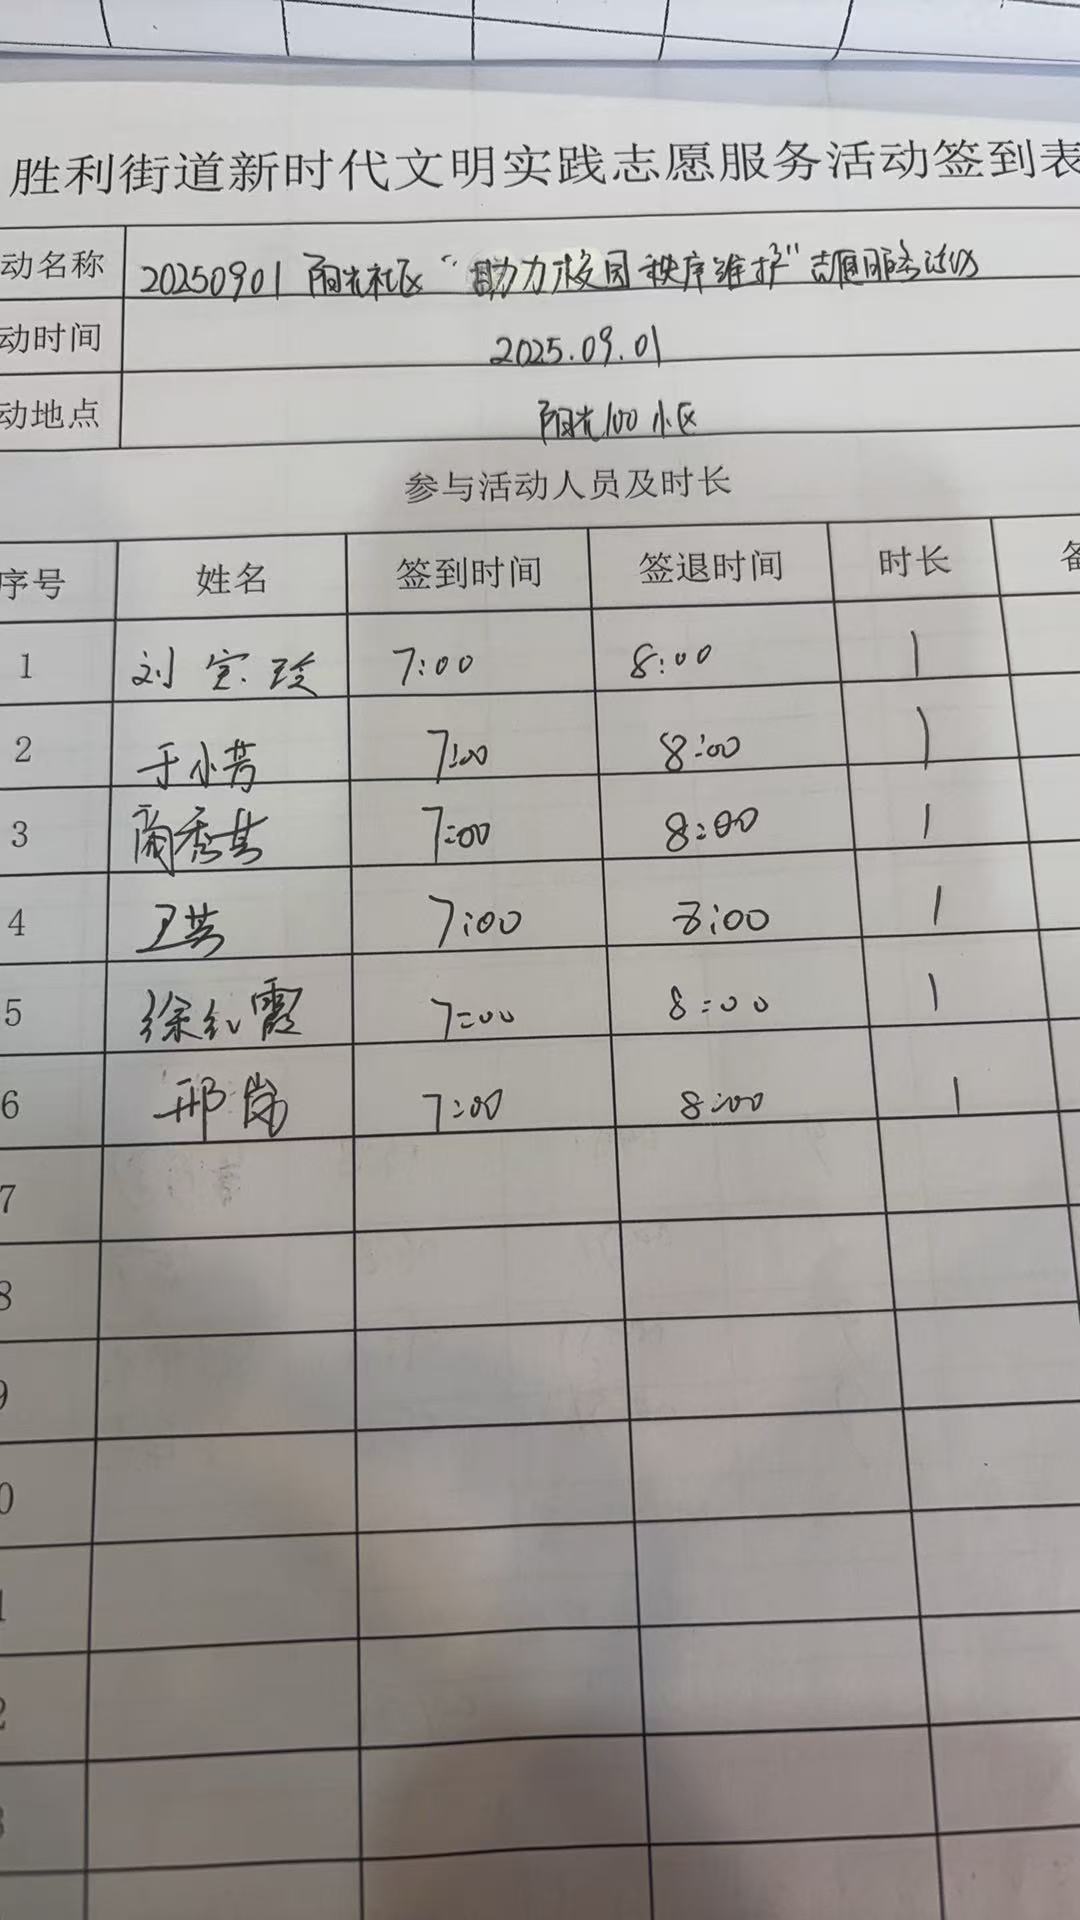 胜利街道新时代文明实践志愿服务活动签到表
动名称 20250901 阳光社区“助力校园秩序维护”志愿服务活动
动时间 2025.09.01
动地点 阳光100小区
参与活动人员及时长
序号 姓名 签到时间 签退时间 时长 备
1 刘宝玲 7:00 8:00 1
2 于小芳 7:00 8:00 1
3 蔺秀其 7:00 8:00 1
4 卫芸 7:00 8:00 1
5 徐红霞 7:00 8:00 1
6 邢岗 7:00 8:00 1
7
8
9
0
1
2
3